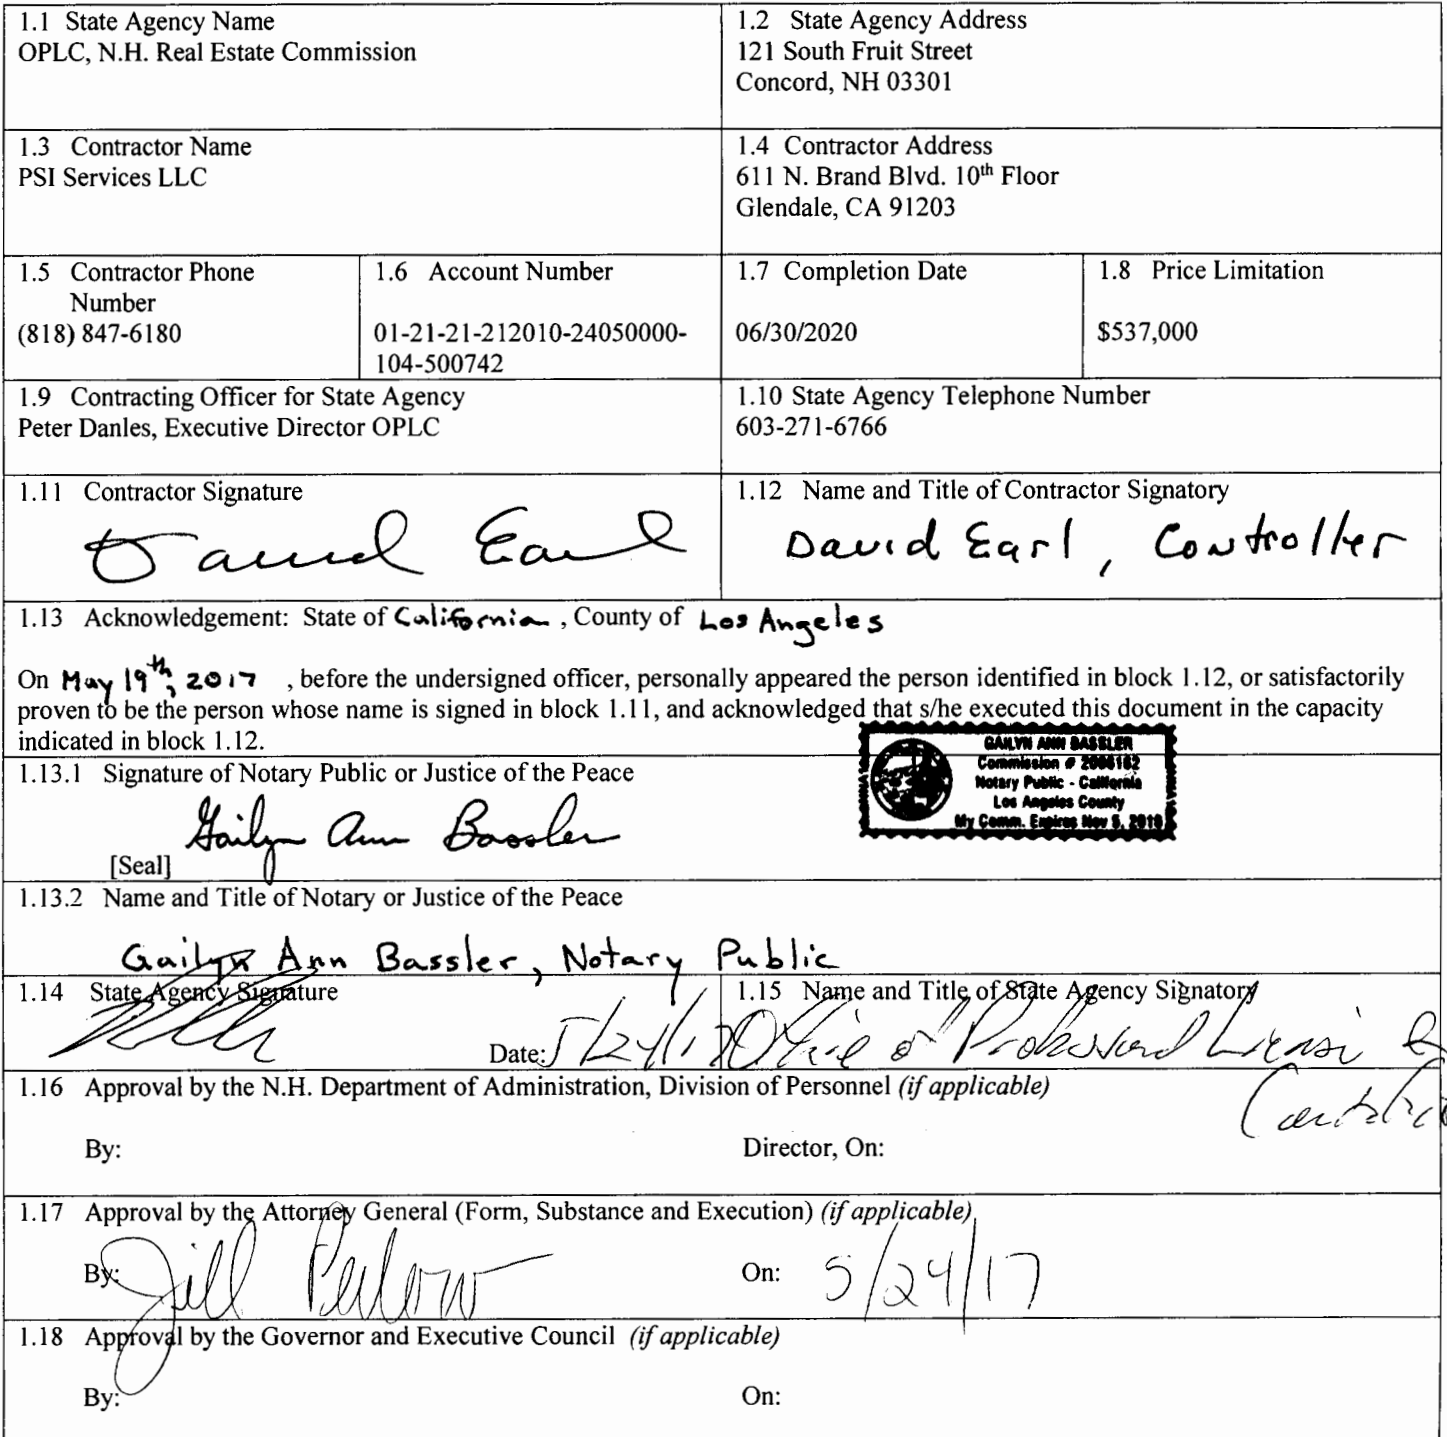 1.1 State Agency Name
OPLC, N.H. Real Estate Commission
1.2 State Agency Address
121 South Fruit Street
Concord, NH 03301
1.3 Contractor Name
PSI Services LLC
1.4 Contractor Address
611 N. Brand Blvd. 10th Floor
Glendale, CA 91203
1.5 Contractor Phone
Number
(818) 847-6180
1.6 Account Number
01-21-21-212010-24050000-
104-500742
1.7 Completion Date
06/30/2020
1.8 Price Limitation
$537,000
1.9 Contracting Officer for State Agency
Peter Danles, Executive Director OPLC
1.10 State Agency Telephone Number
603-271-6766
1.11 Contractor Signature
David Earl
1.12 Name and Title of Contractor Signatory
David Earl, Controller
1.13 Acknowledgement: State of California, County of Los Angeles
On May 19th, 2017 , before the undersigned officer, personally appeared the person identified in block 1.12, or satisfactorily
proven to be the person whose name is signed in block 1.11, and acknowledged that s/he executed this document in the capacity
indicated in block 1.12.
GAILYN ANN BASSLER
Commission # 2086162
Notary Public - California
Los Angeles County
My Comm. Expires Nov 5,
1.13.1 Signature of Notary Public or Justice of the Peace
Gailyn Ann Bassler
[Seal]
1.13.2 Name and Title of Notary or Justice of the Peace
Gailyn Ann Bassler, Notary Public
1.14 State Agency Signature
Date: 5/24/17
1.15 Name and Title of State Agency Signatory
Office of Professional Licensi &
1.16 Approval by the N.H. Department of Administration, Division of Personnel (if applicable)
By:
Director, On:
1.17 Approval by the Attorney General (Form, Substance and Execution) (if applicable)
By: Jill Perlow
On: 5/24/17
1.18 Approval by the Governor and Executive Council (if applicable)
By:
On: